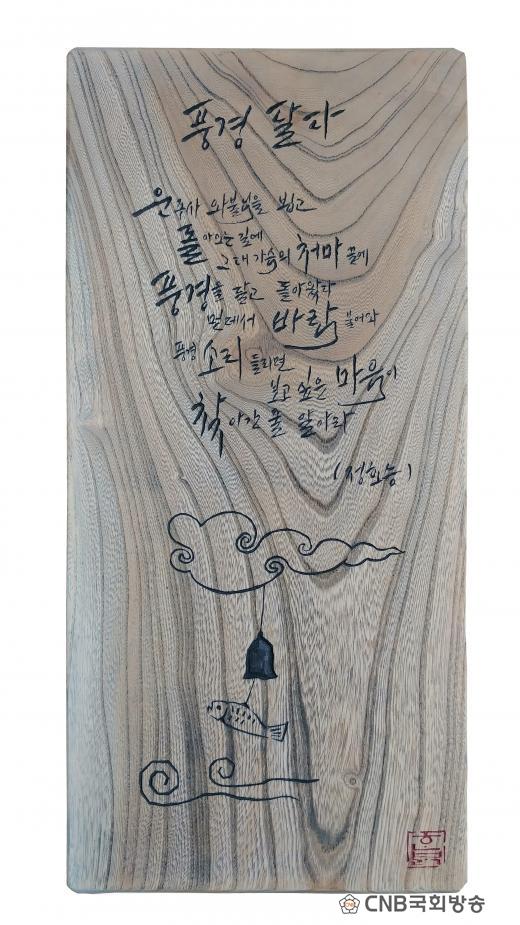 풍경 달다
운주사 와불님을 뵙고
돌아오는 길에
그대 가슴의 처마 끝에
풍경을 달고 돌아왔다
먼데서 바람 불어와
풍경 소리 들리면
보고 싶은 마음이
찾아간 줄 알아라
(정호승)
CNB국회방송